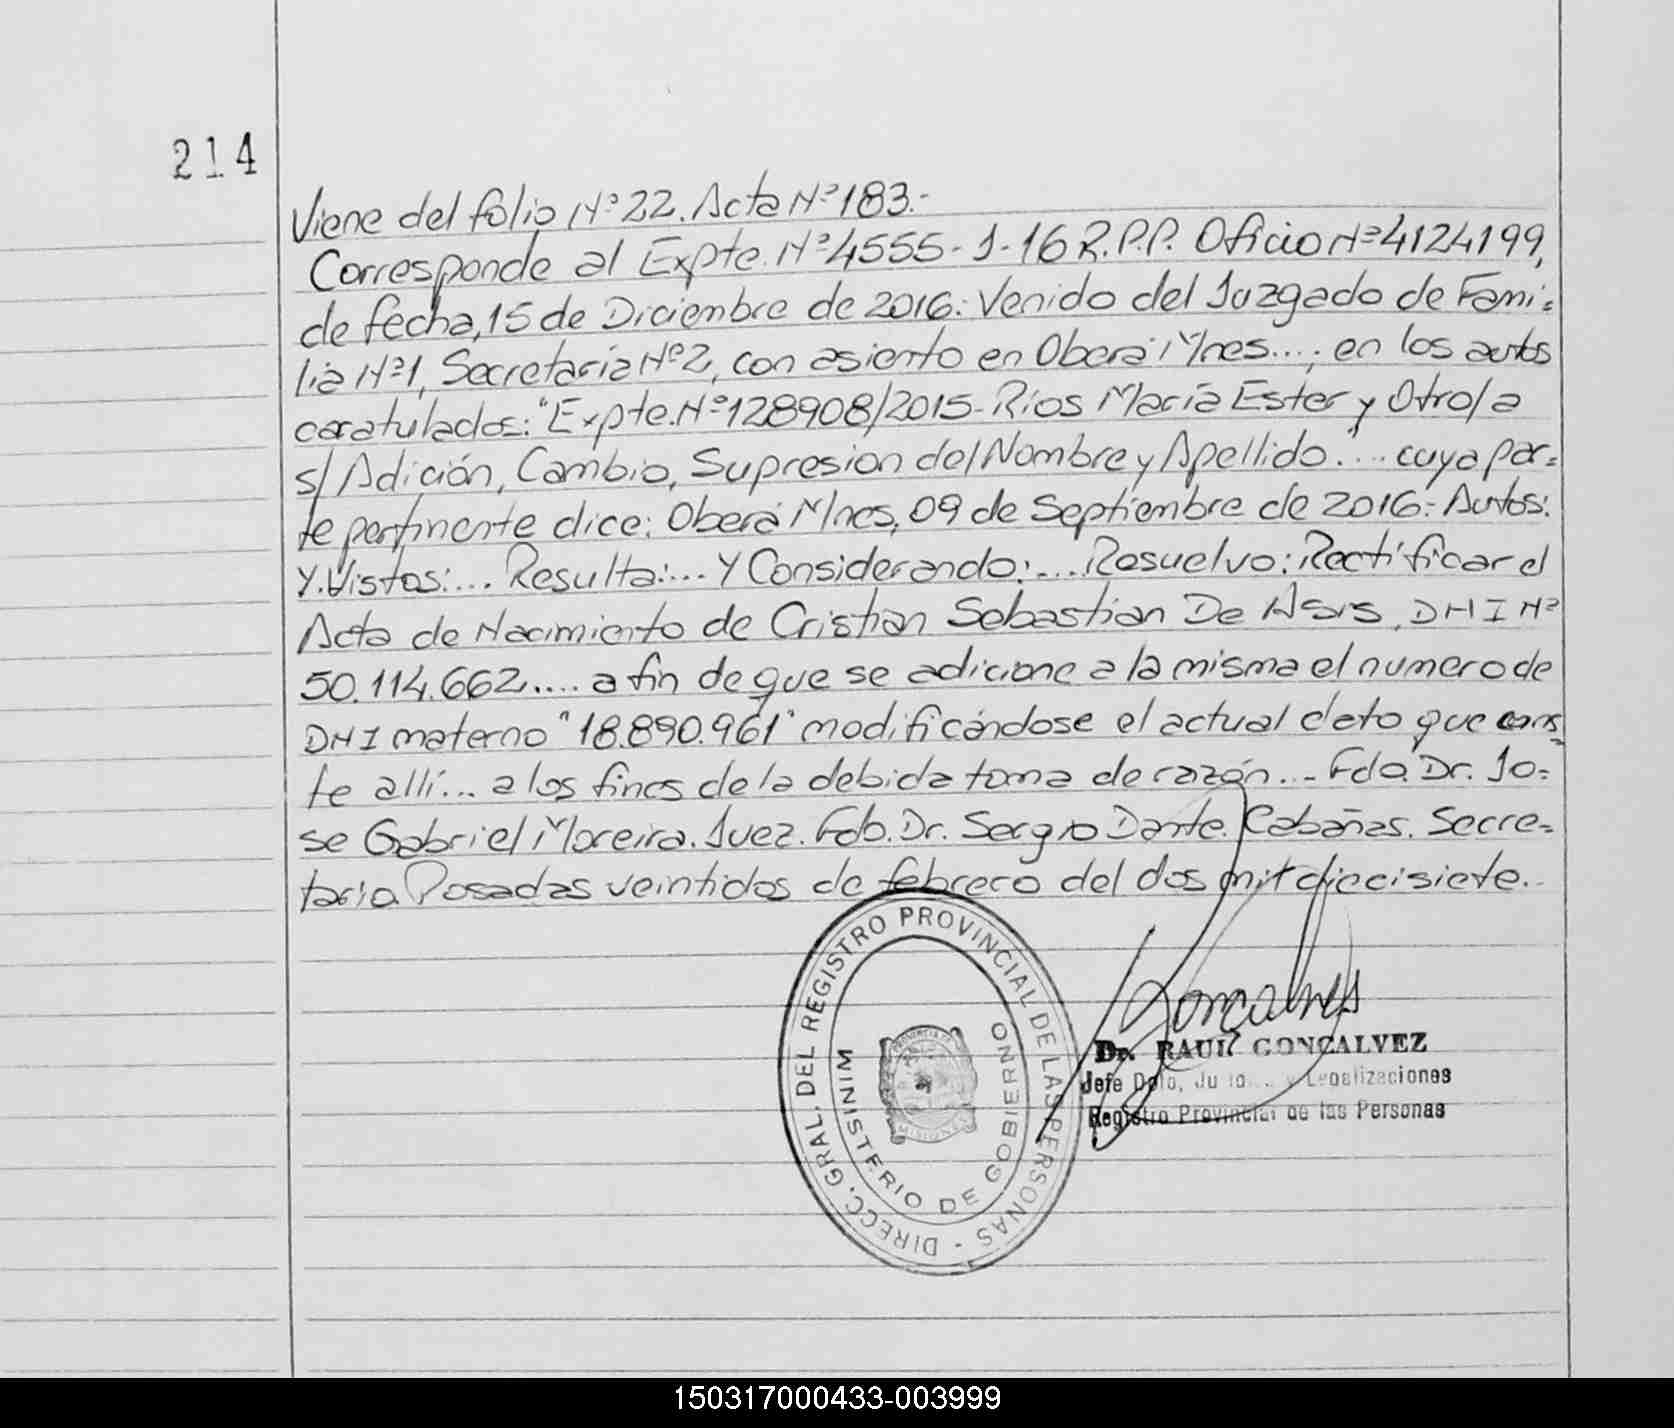 214
Viene del folio Nº 22. Acta Nº 183.-
Corresponde al Expte. Nº 4555-J-16 R.P.P. Oficio Nº 4124199,
de fecha, 15 de Diciembre de 2016: Venido del Juzgado de Fami=
lia Nº 1, Secretaría Nº 2, con asiento en Oberá Mnes....; en los autos
caratulados: "Expte. Nº 128908/2015- Rios María Ester y Otro/a
s/ Adición, Cambio, Supresion del Nombre y Apellido".... cuya par=
te pertinente dice: Oberá Mnes, 09 de Septiembre de 2016:- Autos:
Y. Vistos:... Resulta:... Y Considerando:.... Resuelvo: Rectificar el
Acta de Nacimiento de Cristian Sebastian De Asis, DNI Nº
50.114.662.... a fin de que se adicione a la misma el numero de
DNI materno "18.890.961" modificándose el actual dato que cons
te allí... a los fines de la debida toma de razón... Fdo. Dr. Jo=
se Gabriel Moreira. Juez. Fdo. Dr. Sergio Dante. Cabañas. Secre=
tario. Posadas veintidos de febrero del dos mil diecisiete.-
DIRECC. GRAL. DEL REGISTRO PROVINCIAL DE LAS PERSONAS -
MINISTERIO DE GOBIERNO
PROVINCIA DE
MISIONES
Gonçalves
Dr. RAUL GONÇALVEZ
Jefe Dpto. y Legalizaciones
Registro Provincial de las Personas
150317000433-003999